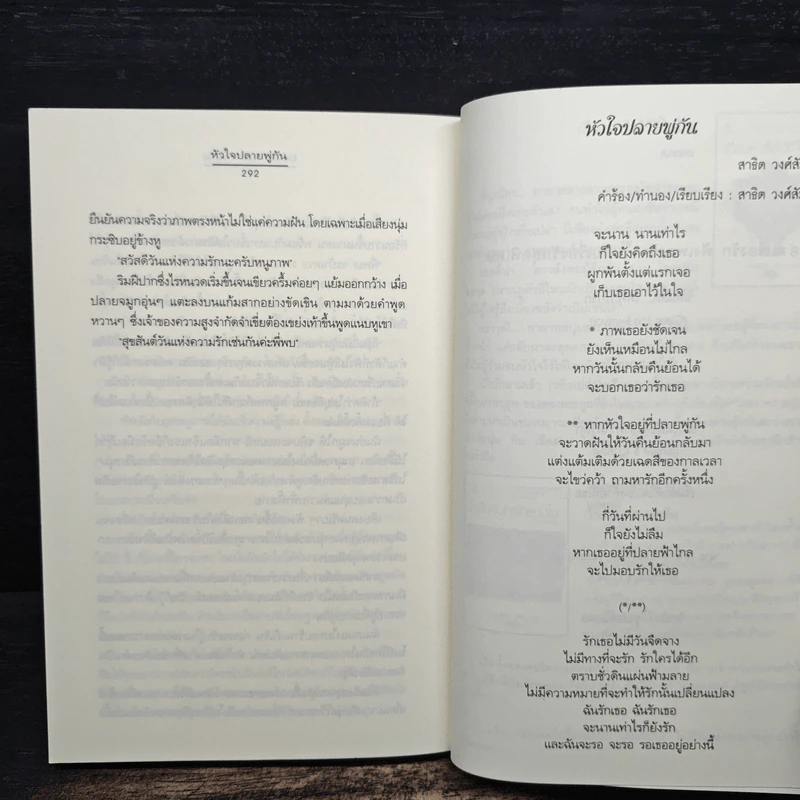 หัวใจปลายพู่กัน
292
ยืนยันความจริงว่าภาพตรงหน้าไม่ใช่แค่ความฝัน โดยเฉพาะเมื่อเสียงนุ่ม
กระซิบอยู่ข้างหู
"สวัสดีวันแห่งความรักนะครับหนูภาพ"
ริมฝีปากซึ่งไรหนวดเริ่มขึ้นจนเขียวครึ้มค่อยๆ แย้มออกกว้าง เมื่อ
ปลายจมูกอุ่นๆ แตะลงบนแก้มสากอย่างขัดเขิน ตามมาด้วยคำพูด
หวานๆ ซึ่งเจ้าของความสูงจำกัดจำเขี่ยต้องเขย่งเท้าขึ้นพูดแนบหูเขา
"สุขสันต์วันแห่งความรักเช่นกันค่ะพี่พบ"
หัวใจปลายพู่กัน
สาธิต วงศ์สั
คำร้อง/ทำนอง/เรียบเรียง : สาธิต วงศ์สั
จะนาน นานเท่าไร
ก็ใจยังคิดถึงเธอ
ผูกพันตั้งแต่แรกเจอ
เก็บเธอเอาไว้ในใจ
* ภาพเธอยังชัดเจน
ยังเห็นเหมือนไม่ไกล
หากวันนั้นกลับคืนย้อนได้
จะบอกเธอว่ารักเธอ
** หากหัวใจอยู่ที่ปลายพู่กัน
จะวาดฝันให้วันคืนย้อนกลับมา
แต่งแต้มเติมด้วยเฉดสีของกาลเวลา
จะไขว่คว้า ถามหารักอีกครั้งหนึ่ง
กี่วันที่ผ่านไป
ก็ใจยังไม่ลืม
หากเธออยู่ที่ปลายฟ้าไกล
จะไปมอบรักให้เธอ
(*/**)
รักเธอไม่มีวันจืดจาง
ไม่มีทางที่จะรัก รักใครได้อีก
ตราบชั่วดินแผ่นฟ้ามลาย
ไม่มีความหมายที่จะทำให้รักนั้นเปลี่ยนแปลง
ฉันรักเธอ ฉันรักเธอ
จะนานเท่าไรก็ยังรัก
และฉันจะรอ จะรอ รอเธออยู่อย่างนี้